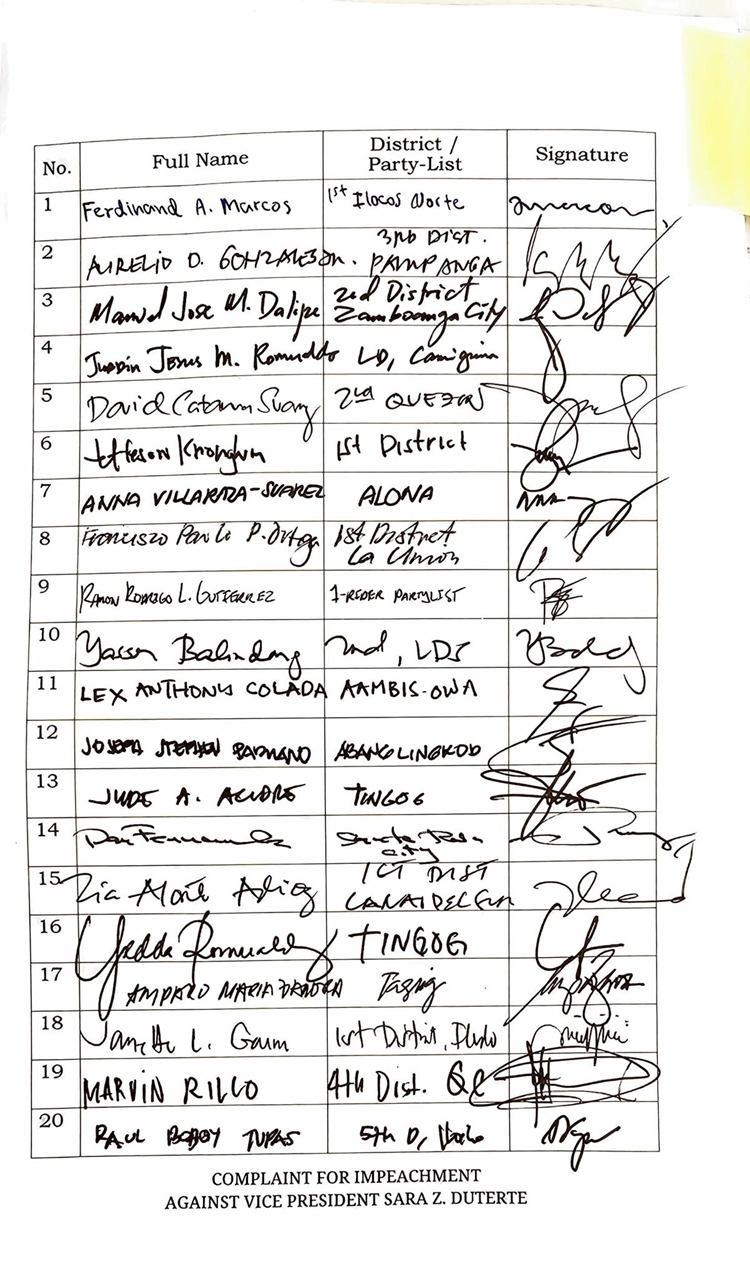 No. Full Name District / Party-List Signature
1 Ferdinand A. Marcos 1st Ilocos Norte
2 AURELIO D. GONZALES JR. 3RD DIST. PAMPANGA
3 Manuel Jose M. Dalipe 2nd District Zamboanga City
4 Jesus M. Romualdo LD, Camiguin
5 David Suarez 2nd QUEZON
6 Jefferson Khonghun 1st District
7 ANNA VILLARAZA-SUAREZ ALONA
8 Francisco Paolo P. Ortega 1st District La Union
9 RAMON RODRIGO L. GUTIERREZ 1-RIDER PARTYLIST
10 Yasser Balindong 2nd, LDS
11 LEX ANTHONY COLADA AAMBIS-OWA
12 JOSEPH STEPHEN PADUANO ABANG LINGKOD
13 JUDE A. ACIDRE TINGOG
14 Dan Fernandez Santa Rosa City
15 Zia Alonto Adiong 1ST DIST LANAO DEL SUR
16 Yedda Romualdez TINGOG
17 AMPARO MARIA ZAMORA Taguig
18 Janette L. Garin 1st District, Iloilo
19 MARVIN RILLO 4th Dist. QC
20 RAUL BOBOY TUPAS 5th D, Iloilo
COMPLAINT FOR IMPEACHMENT
AGAINST VICE PRESIDENT SARA Z. DUTERTE